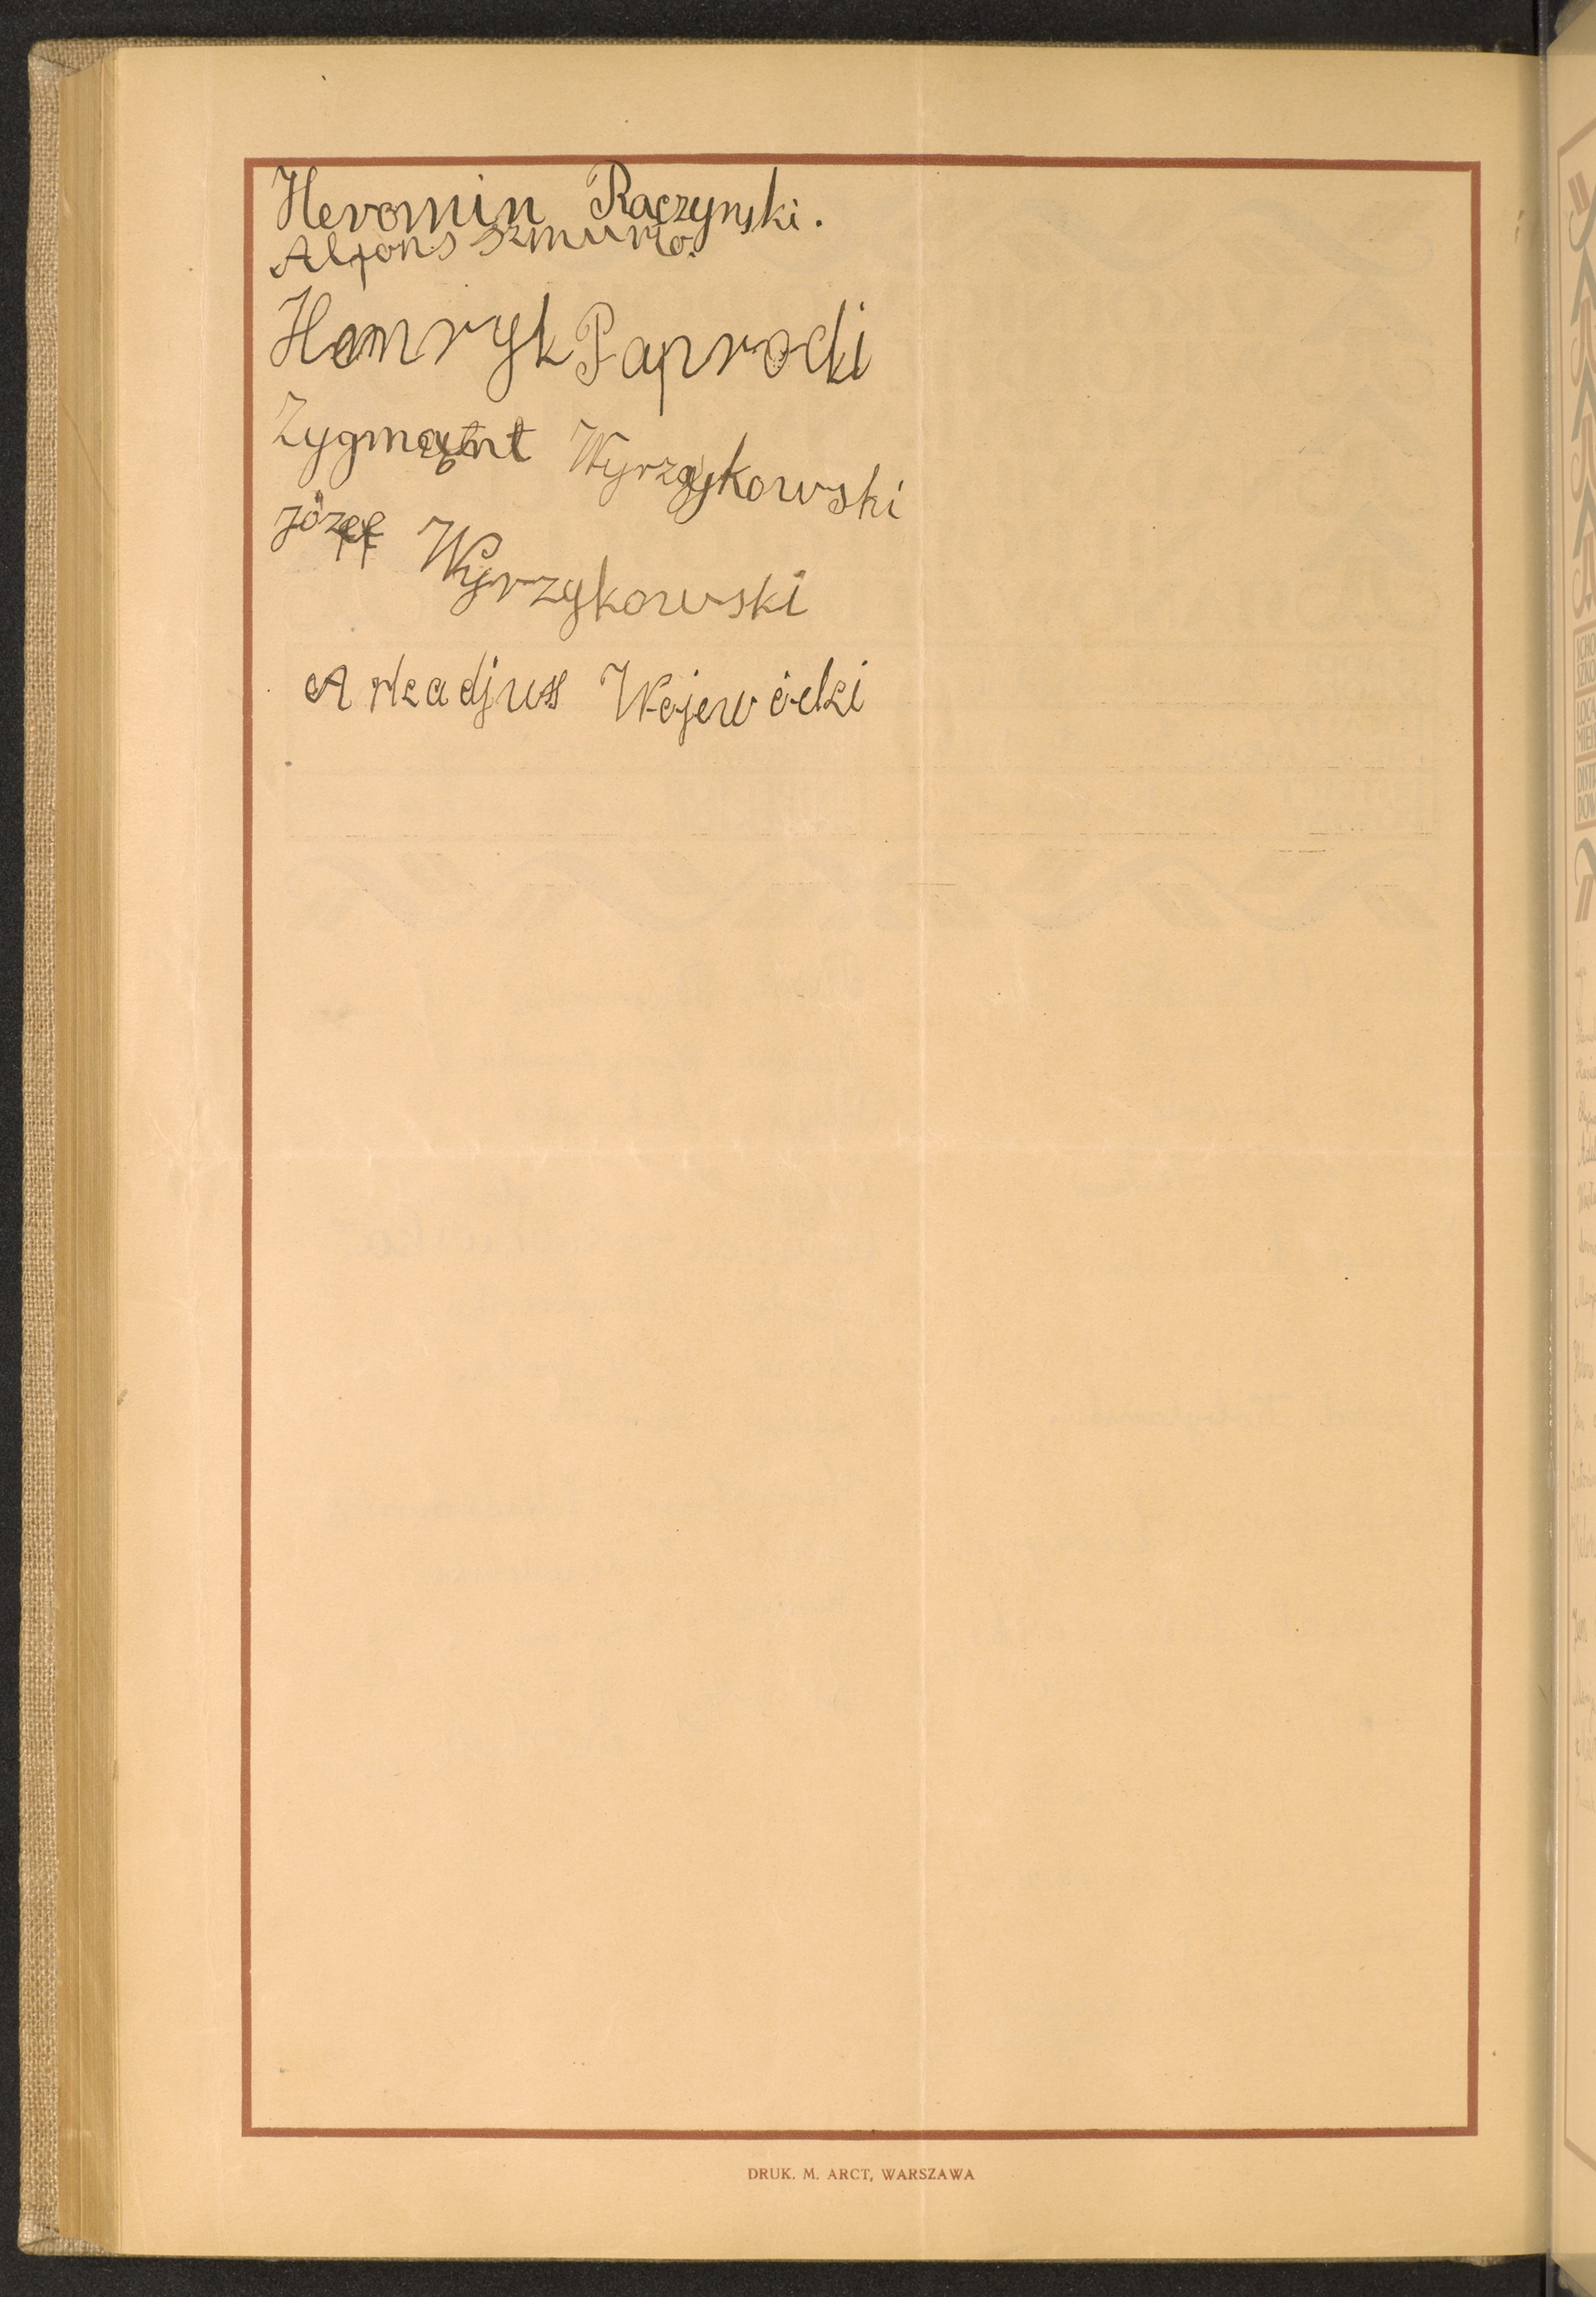 Heromin Raczynski.
Alfons Szmurło.
Henryk Paprocki
Zygmunt Wyrzykowski
Józef Wyrzykowski
Arkadjusz Wojewódzki
DRUK. M. ARCT, WARSZAWA